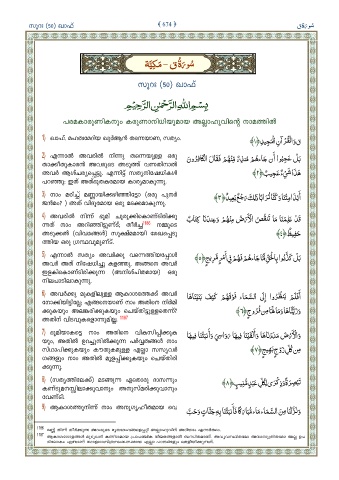 സൂറഃ (50) ഖാഫ്
❮ 674 ❯
سُورَةُ ق
سُورَةُ قٓ - مَكِّيَّة
സൂറഃ (50) ഖാഫ്
بِسْمِ اللَّهِ الرَّحْمَٰنِ الرَّحِيمِ
പരമകാരുണികനും കരുണാനിധിയുമായ അല്ലാഹുവിന്റെ നാമത്തിൽ
1) ഖാഫ്. മഹത്തായ ഖുർആൻ തന്നെയാണ, സത്യം.
قٓ وَالْقُرْآنِ الْمَجِيدِ ﴿١﴾
2) എന്നാൽ അവരിൽ നിന്നു തന്നെയുള്ള ഒരു
താക്കീതുകാരൻ അവരുടെ അടുത്ത് വന്നതിനാൽ
അവർ ആശ്ചര്യപ്പെട്ടു. എന്നിട്ട് സത്യനിഷേധികൾ
പറഞ്ഞു: ഇത് അത്ഭുതകരമായ കാര്യമാകുന്നു.
بَلْ عَجِبُوا أَن جَاءَهُم مُّنذِرٌ مِّنْهُمْ فَقَالَ الْكَافِرُونَ
هَٰذَا شَيْءٌ عَجِيبٌ ﴿٢﴾
3) നാം മരിച്ച് മണ്ണായിക്കഴിഞ്ഞിട്ടോ (ഒരു പുനർ
ജന്മം? ) അത് വിദൂരമായ ഒരു മടക്കമാകുന്നു.
أَإِذَا مِتْنَا وَكُنَّا تُرَابًا ذَٰلِكَ رَجْعٌ بَعِيدٌ ﴿٣﴾
4) അവരിൽ നിന്ന് ഭൂമി ചുരുക്കിക്കൊണ്ടിരിക്കു
ന്നത് നാം അറിഞ്ഞിട്ടുണ്ട്; തീർച്ച നമ്മുടെ
അടുക്കൽ (വിവരങ്ങൾ) സൂക്ഷ്മമായി രേഖപ്പെടു
ത്തിയ ഒരു ഗ്രന്ഥവുമുണ്ട്.
قَدْ عَلِمْنَا مَا تَنقُصُ الْأَرْضُ مِنْهُمْ وَعِندَنَا كِتَابٌ
حَفِيظٌ ﴿٤﴾
5) എന്നാൽ സത്യം അവർക്കു വന്നെത്തിയപ്പോൾ
അവർ അത് നിഷേധിച്ചു കളഞ്ഞു. അങ്ങനെ അവർ
ഇളകികൊണ്ടിരിക്കുന്ന (അനിശ്ചിതമായ) ഒരു
നിലപാടിലാകുന്നു.
بَلْ كَذَّبُوا بِالْحَقِّ لَمَّا جَاءَهُمْ فَهُمْ فِي أَمْرٍ مَّرِيجٍ ﴿٥﴾
6) അവർക്കു മുകളിലുള്ള ആകാശത്തേക്ക് അവർ
നോക്കിയിട്ടില്ലേ; എങ്ങനെയാണ് നാം അതിനെ നിർമി
ക്കുകയും അലങ്കരിക്കുകയും ചെയ്തിട്ടുള്ളതെന്ന്?
അതിന് വിടവുകളൊന്നുമില്ല.
أَفَلَمْ يَنظُرُوا إِلَى السَّمَاءِ فَوْقَهُمْ كَيْفَ بَنَيْنَاهَا
وَزَيَّنَّاهَا وَمَا لَهَا مِن فُرُوجٍ ﴿٦﴾
7) ഭൂമിയാകട്ടെ നാം അതിനെ വികസിപ്പിക്കുക
യും, അതിൽ ഉറച്ചുനിൽക്കുന്ന പർവ്വതങ്ങൾ നാം
സ്ഥാപിക്കുകയും കൗതുകമുള്ള എല്ലാ സസ്യവർ
ഗങ്ങളും നാം അതിൽ മുളപ്പിക്കുകയും ചെയ്തിരി
ക്കുന്നു.
وَالْأَرْضَ مَدَدْنَاهَا وَأَلْقَيْنَا فِيهَا رَوَاسِيَ وَأَنبَتْنَا فِيهَا
مِن كُلِّ زَوْجٍ بَهِيجٍ ﴿٧﴾
8) (സത്യത്തിലേക്ക്) മടങ്ങുന്ന ഏതൊരു ദാസനും
കണ്ടുമനസ്സിലാക്കുവാനും അനുസ്മരിക്കുവാനും
വേണ്ടി.
تَبْصِرَةً وَذِكْرَىٰ لِكُلِّ عَبْدٍ مُّنِيبٍ ﴿٨﴾
9) ആകാശത്തുനിന്ന് നാം അനുഗൃഹീതമായ വെ
وَنَزَّلْنَا مِنَ السَّمَاءِ مَاءً مُّبَارَكًا فَأَنبَتْنَا بِهِ جَنَّاتٍ وَحَبَّ